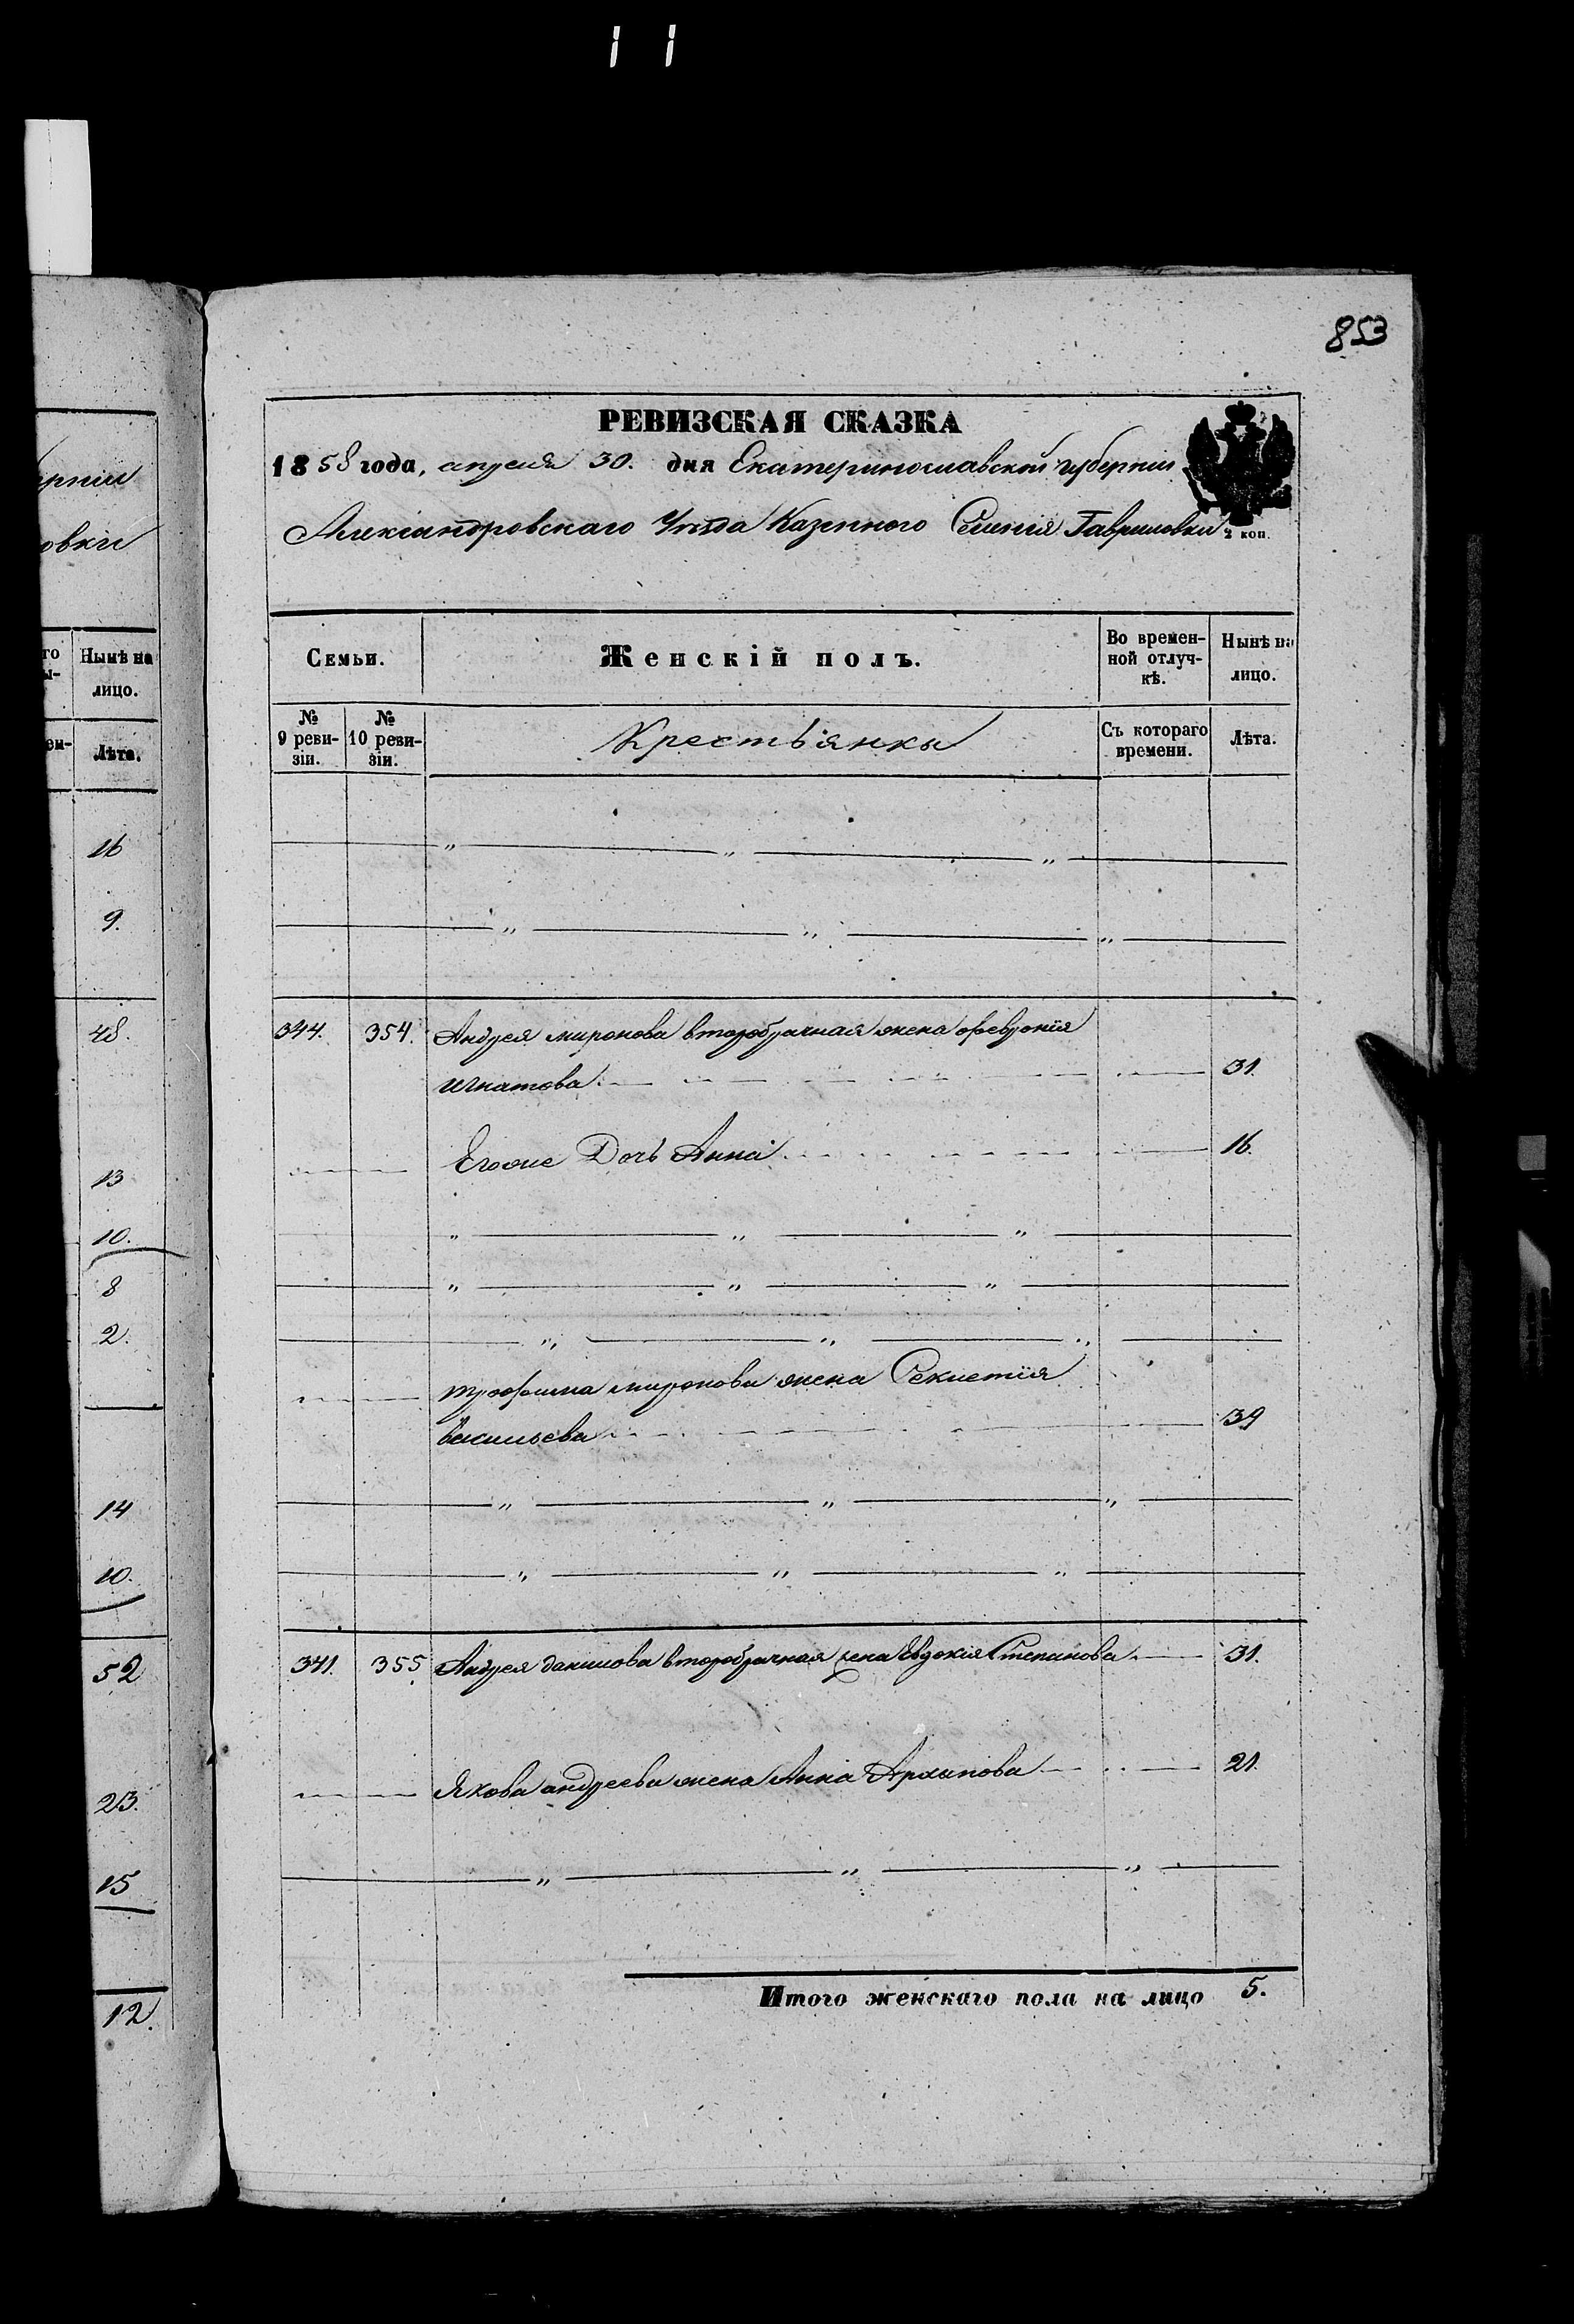 853
РЕВИЗСКАЯ СКАЗКА
1858 года, апреля 30. дня Екатеринославской губернии
Александровскаго Уѣзда Казенного Селенія Гавриловки
2 коп.
Семьи. Женскій полъ. Во времен-ной отлуч-кѣ. Нынѣ на лицо.
№ 9 реви-зіи. № 10 реви-зіи. Крестьянки Съ котораго времени. Лѣта.
344. 354. Андрея миронова второбрачная жена Февронія
игнатова 31.
Егоже Дочь Анна 16.
трофима миронова жена Секлетія
васильева 39
341. 355 Андрея данилова второбрачная жена Евдокія Степанова 31.
Якова андреева жена Анна Архипова 21.
Итого женскаго пола на лицо 5.
рніи
овки
го
ы-
Нынѣ на
лицо.
ен-
Лѣта.
16
9.
48.
13
10.
8
2.
14
10.
52
23.
15
12.